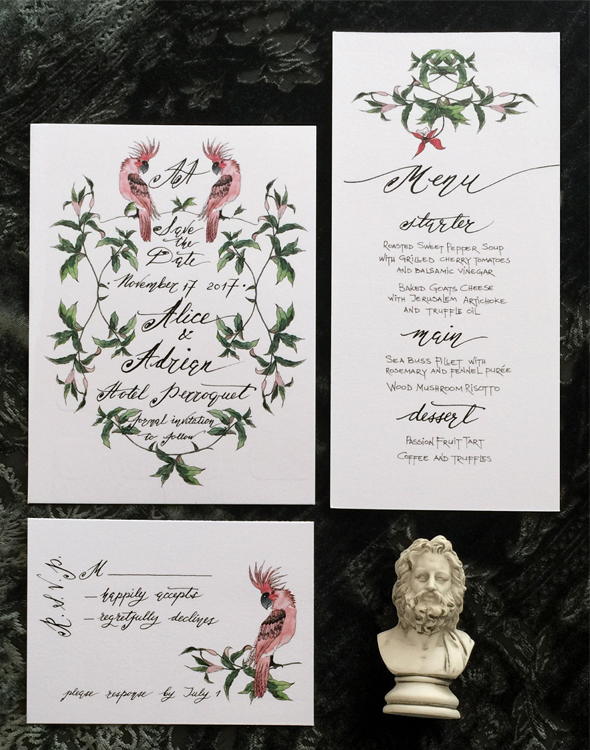 AA
Save
the
Date
·November 17 2017·
Alice
&
Adrian
Hotel Perroquet
formal invitation
to follow
Menu
starter
Roasted Sweet Pepper Soup
with Grilled Cherry Tomatoes
and Balsamic Vinegar
Baked Goats Cheese
with Jerusalem Artichoke
and Truffle Oil
main
Sea Buss Fillet with
rosemary and fennel purée
Wood Mushroom Risotto
dessert
Passion Fruit Tart
Coffee and Truffles
R.S.V.P.
M
– happily accepts
– regretfully declines
please response by July 1